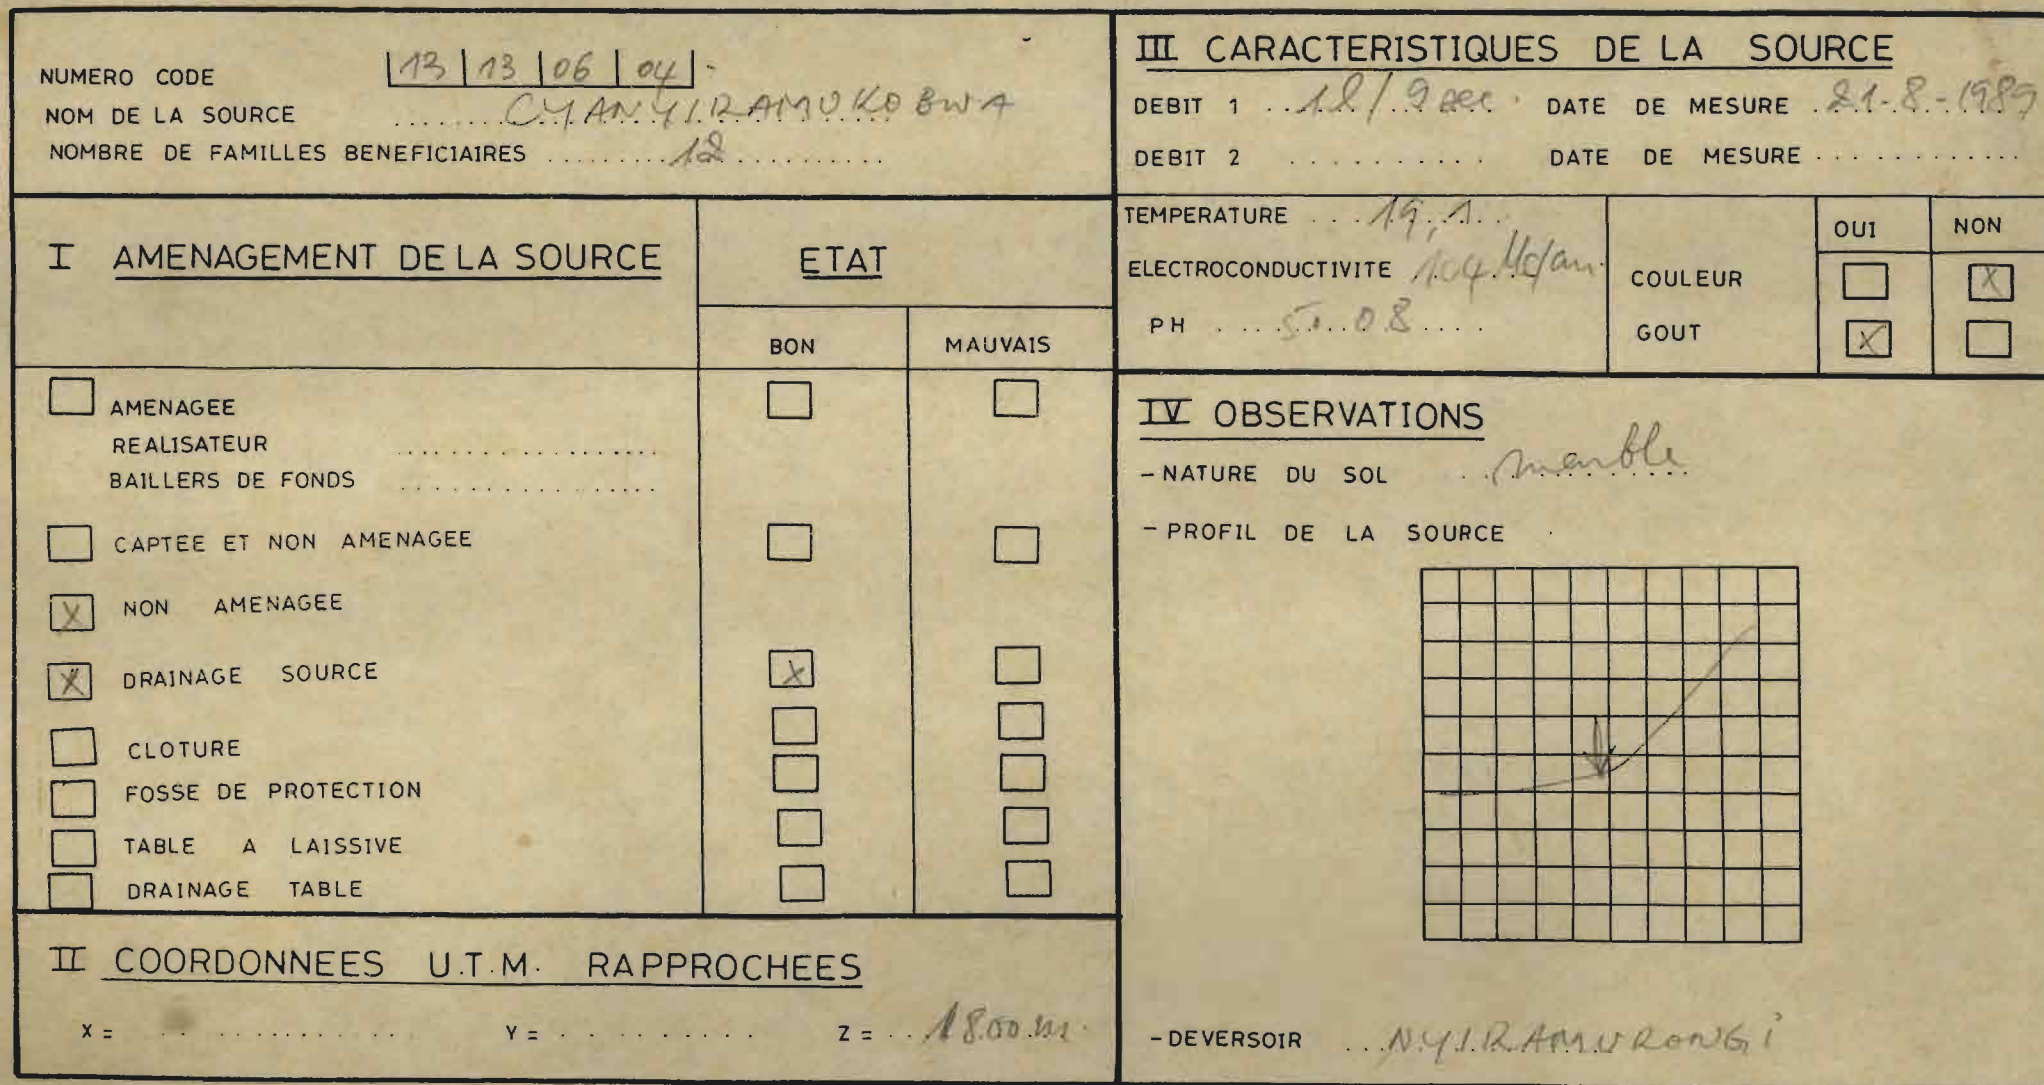 NUMERO CODE |13|13|06|04|
NOM DE LA SOURCE ........ CYANYIRAMUKOBWA
NOMBRE DE FAMILLES BENEFICIAIRES ......... 12 ..........
I AMENAGEMENT DE LA SOURCE
ETAT
BON MAUVAIS
AMENAGEE
REALISATEUR ..................
BAILLERS DE FONDS .................
CAPTEE ET NON AMENAGEE
X NON AMENAGEE
X DRAINAGE SOURCE X
CLOTURE
FOSSE DE PROTECTION
TABLE A LAISSIVE
DRAINAGE TABLE
II COORDONNEES U.T.M. RAPPROCHEES
X = .............. Y = .......... Z = .. 1800 m.
III CARACTERISTIQUES DE LA SOURCE
DEBIT 1 .. 1l/9 sec. DATE DE MESURE . 21-8-1989
DEBIT 2 .......... DATE DE MESURE ............
TEMPERATURE ... 19,1..
ELECTROCONDUCTIVITE 104
PH .... 5.08 ....
OUI NON
COULEUR X
GOUT X
IV OBSERVATIONS
- NATURE DU SOL .. meuble
- PROFIL DE LA SOURCE
- DEVERSOIR ... NYIRAMURONGI